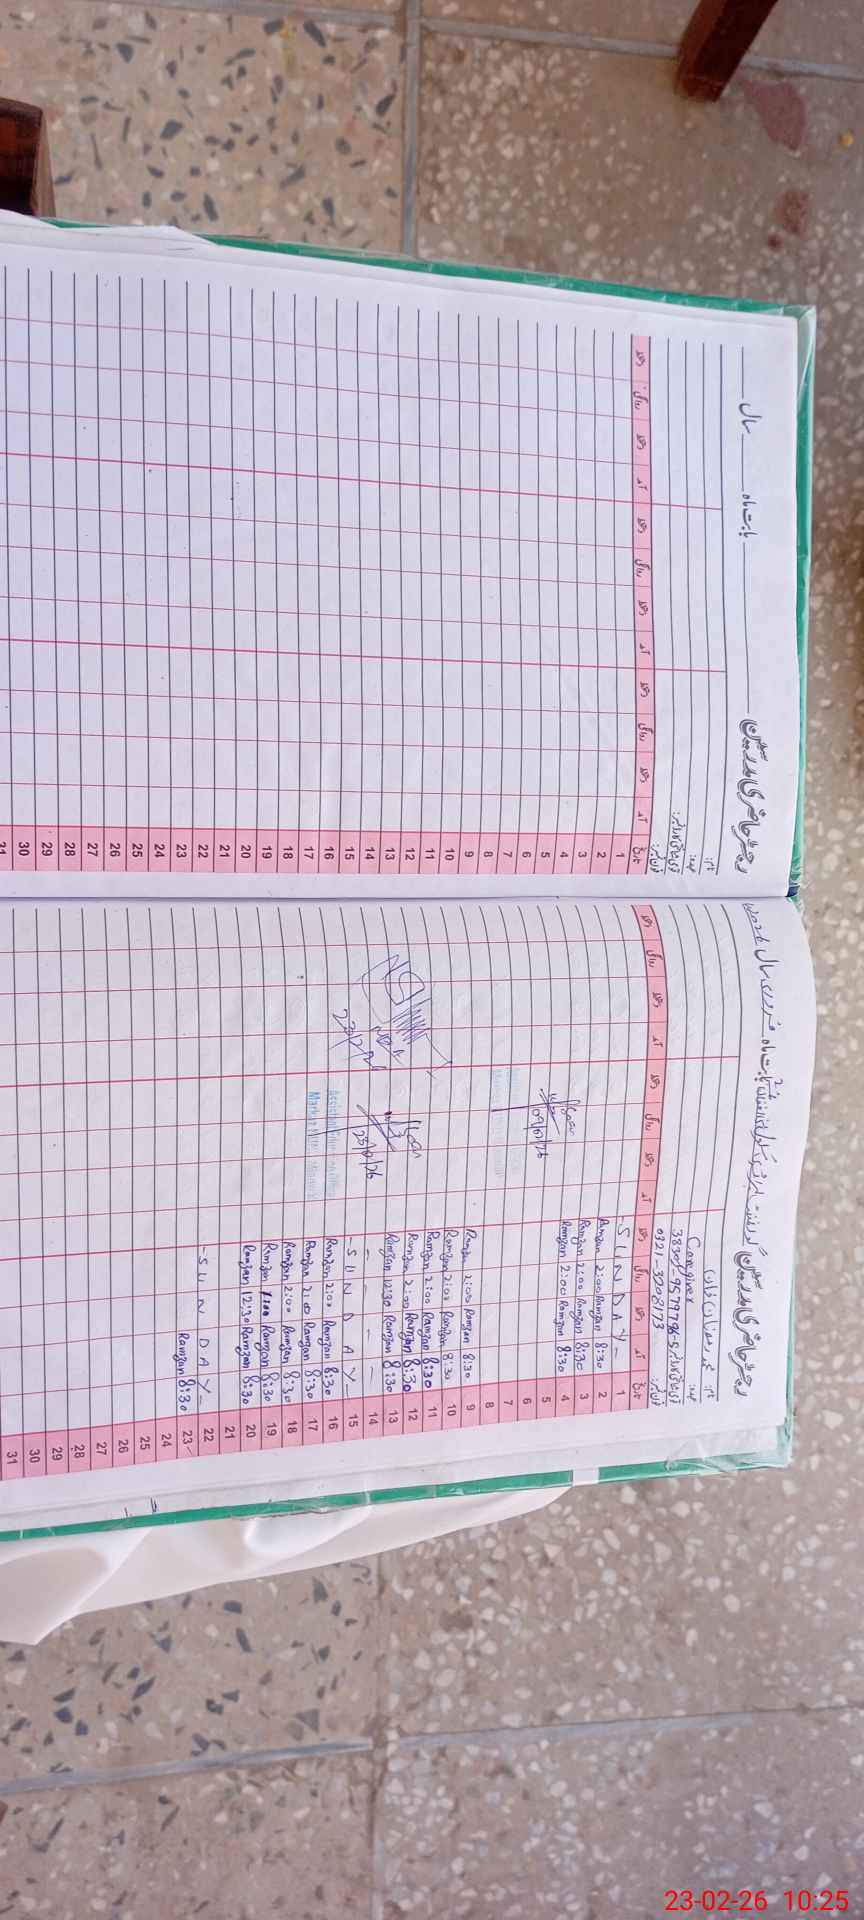 رجسٹر حاضری مدرسین
بابت ماہ
سال
نام:
عہدہ:
قومی شناختی کارڈ نمبر:
فون نمبر:
تاریخ آمد دستخط روانگی دستخط آمد دستخط روانگی دستخط آمد دستخط روانگی دستخط
1
2
3
4
5
6
7
8
9
10
11
12
13
14
15
16
17
18
19
20
21
22
23
24
25
26
27
28
29
30
31
رجسٹر حاضری مدرسین
بابت ماہ فروری سال
نام: محمد رمضان خان
عہدہ: Caregiver
قومی شناختی کارڈ نمبر:
فون نمبر: 0321-3208173
تاریخ آمد دستخط روانگی دستخط آمد دستخط روانگی دستخط آمد دستخط روانگی دستخط
1 - S U N D A Y -
2 8:30 Ramzan 2:00 Ramzan
3 8:30 Ramzan 2:00 Ramzan
4 8:30 Ramzan 2:00 Ramzan
5
6
7
8
9 8:30 Ramzan 2:00 Ramzan
10 8:30 Ramzan 2:00 Ramzan
11 8:30 Ramzan 2:00 Ramzan
12 8:30 Ramzan 2:00 Ramzan
13 8:30 Ramzan 12:30 Ramzan
14 - - - - -
15 - S U N D A Y -
16 8:30 Ramzan 2:00 Ramzan
17 8:30 Ramzan 2:00 Ramzan
18 8:30 Ramzan 2:00 Ramzan
19 8:30 Ramzan 1:00 Ramzan
20 8:30 Ramzan 12:30 Ramzan
21
22 - S U N D A Y -
23 8:30 Ramzan
24
25
26
27
28
29
30
31
23-02-26 10:25